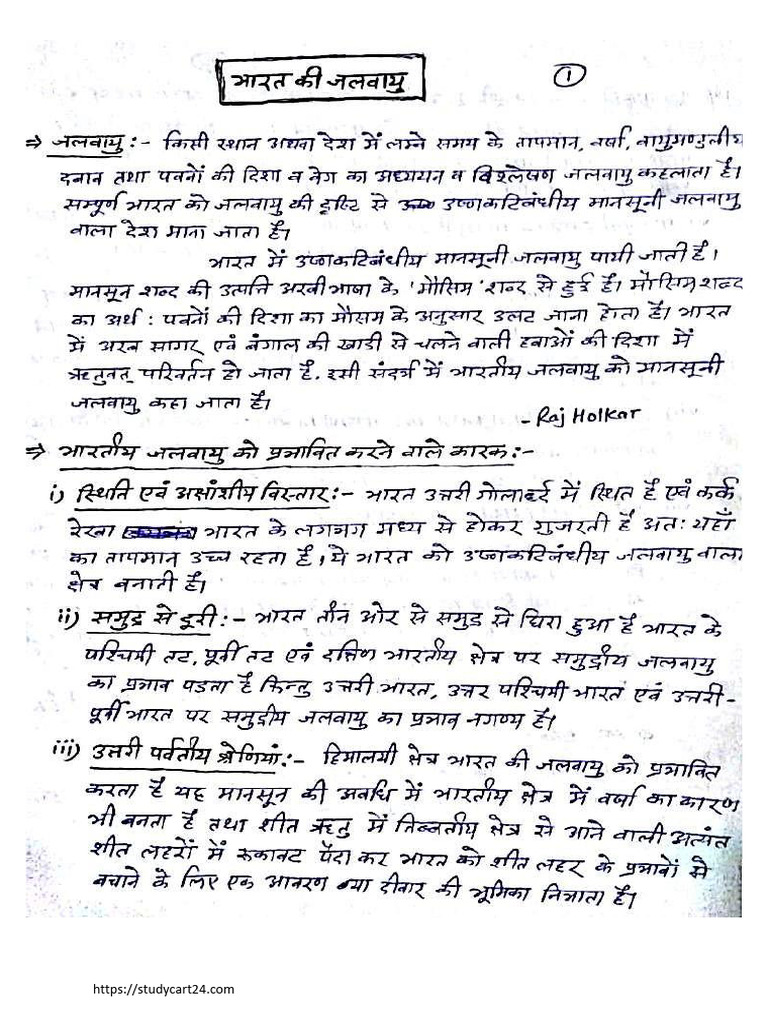 भारत की जलवायु
①
⇒ जलवायु :- किसी स्थान अथवा देश में लम्बे समय के तापमान, वर्षा, वायुमण्डलीय
दबाव तथा पवनों की दिशा व वेग का अध्ययन व विश्लेषण जलवायु कहलाता है।
सम्पूर्ण भारत को जलवायु की दृष्टि से उष्णकटिबंधीय मानसूनी जलवायु
वाला देश माना जाता है।
भारत में उष्णकटिबंधीय मानसूनी जलवायु पायी जाती है।
मानसून शब्द की उत्पत्ति अरबी भाषा के 'मौसिम' शब्द से हुई है। मौसिम शब्द
का अर्थ : पवनों की दिशा का मौसम के अनुसार उलट जाना होता है। भारत
में अरब सागर एवं बंगाल की खाडी से चलने वाली हवाओं की दिशा में
ऋतुवत् परिवर्तन हो जाता है, इसी संदर्भ में भारतीय जलवायु को मानसूनी
जलवायु कहा जाता है।
- Raj Holkar
⇒ भारतीय जलवायु को प्रभावित करने वाले कारक :-
i) स्थिति एवं अक्षांशीय विस्तार :- भारत उत्तरी गोलार्द्ध में स्थित है एवं कर्क
रेखा भारत के लगभग मध्य से होकर गुजरती है अतः यहाँ
का तापमान उच्च रहता है, ये भारत को उष्णकटिबंधीय जलवायु वाला
क्षेत्र बनाती है।
ii) समुद्र से दूरी :- भारत तीन ओर से समुद्र से घिरा हुआ है भारत के
पश्चिमी तट, पूर्वी तट एवं दक्षिण भारतीय क्षेत्र पर समुद्रीय जलवायु
का प्रभाव पडता है किन्तु उत्तरी भारत, उत्तर पश्चिमी भारत एवं उत्तरी-
पूर्वी भारत पर समुद्रीय जलवायु का प्रभाव नगण्य है।
iii) उत्तरी पर्वतीय श्रेणियां :- हिमालयी क्षेत्र भारत की जलवायु को प्रभावित
करता है यह मानसून की अवधि में भारतीय क्षेत्र में वर्षा का कारण
भी बनता है तथा शीत ऋतु में तिब्बतीय क्षेत्र से आने वाली अत्यंत
शीत लहरों में रुकावट पैदा कर भारत को शीत लहर के प्रभावों से
बचाने के लिए एक आवरण या दीवार की भूमिका निभाता है।
https://studycart24.com